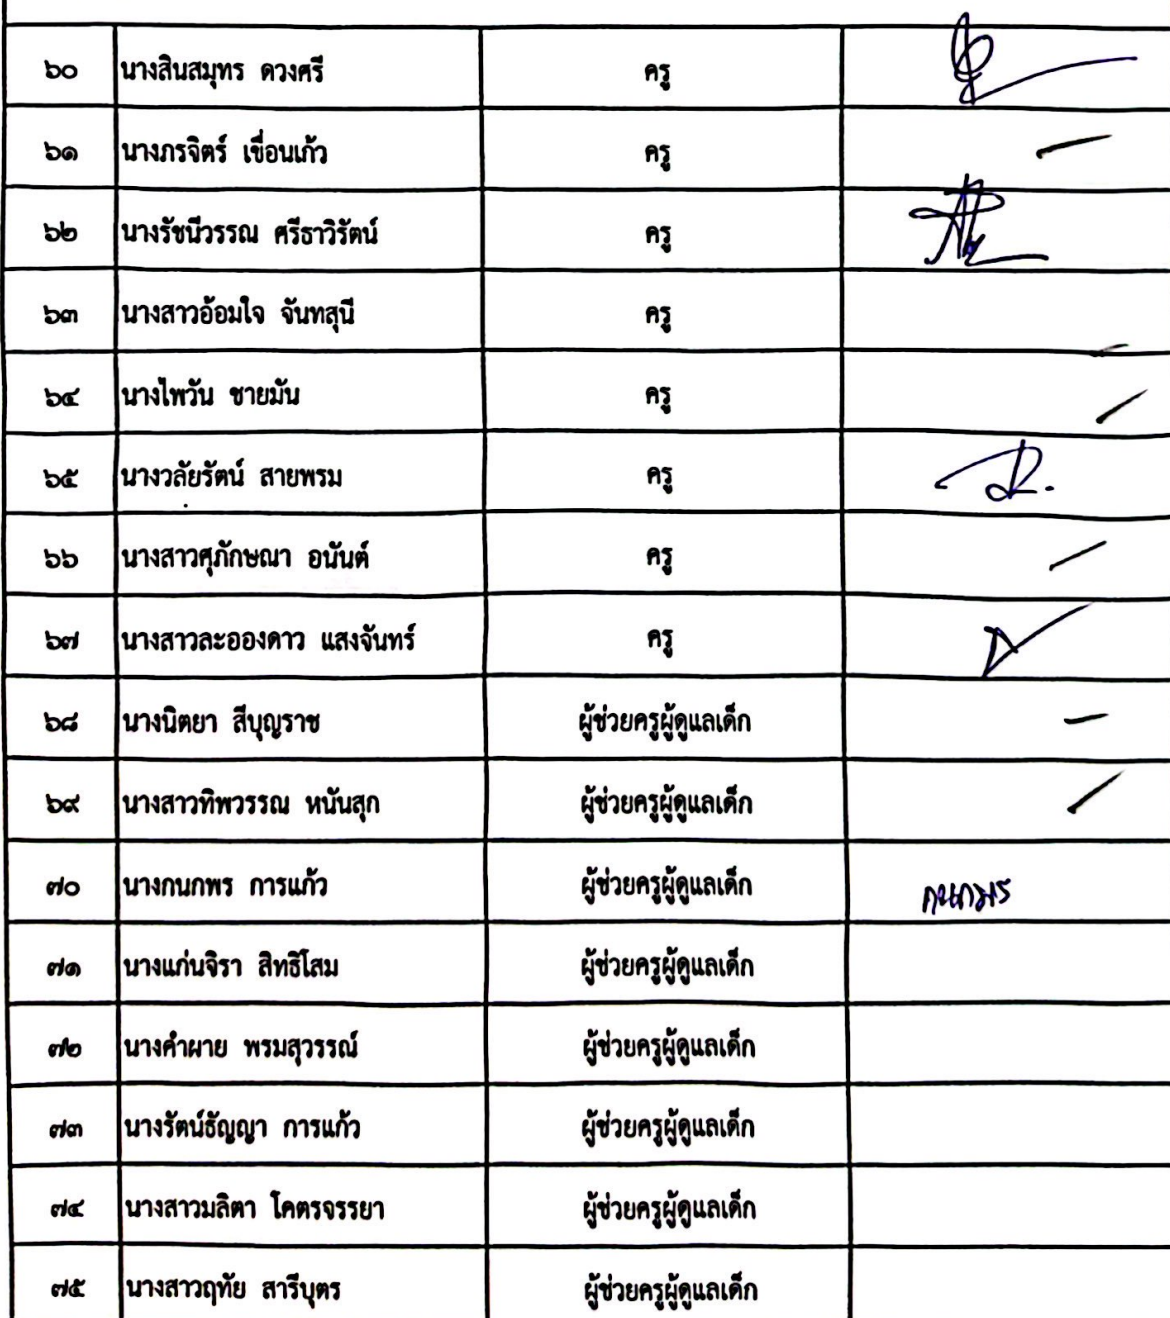 ๖๐ นางสินสมุทร ดวงศรี ครู
๖๑ นางภรจิตร์ เขื่อนแก้ว ครู
๖๒ นางรัชนีวรรณ ศรีธาวิรัตน์ ครู
๖๓ นางสาวอ้อมใจ จันทสุนี ครู
๖๔ นางไพวัน ชายมัน ครู
๖๕ นางวลัยรัตน์ สายพรม ครู
๖๖ นางสาวศุภักษณา อนันต์ ครู
๖๗ นางสาวละอองดาว แสงจันทร์ ครู
๖๘ นางนิตยา สีบุญราช ผู้ช่วยครูผู้ดูแลเด็ก
๖๙ นางสาวทิพวรรณ หนันสุก ผู้ช่วยครูผู้ดูแลเด็ก
๗๐ นางกนกพร การแก้ว ผู้ช่วยครูผู้ดูแลเด็ก กนกพร
๗๑ นางแก่นจิรา สิทธิโสม ผู้ช่วยครูผู้ดูแลเด็ก
๗๒ นางคำผาย พรมสุวรรณ์ ผู้ช่วยครูผู้ดูแลเด็ก
๗๓ นางรัตน์ธัญญา การแก้ว ผู้ช่วยครูผู้ดูแลเด็ก
๗๔ นางสาวมลิตา โคตรจรรยา ผู้ช่วยครูผู้ดูแลเด็ก
๗๕ นางสาวฤทัย สารีบุตร ผู้ช่วยครูผู้ดูแลเด็ก